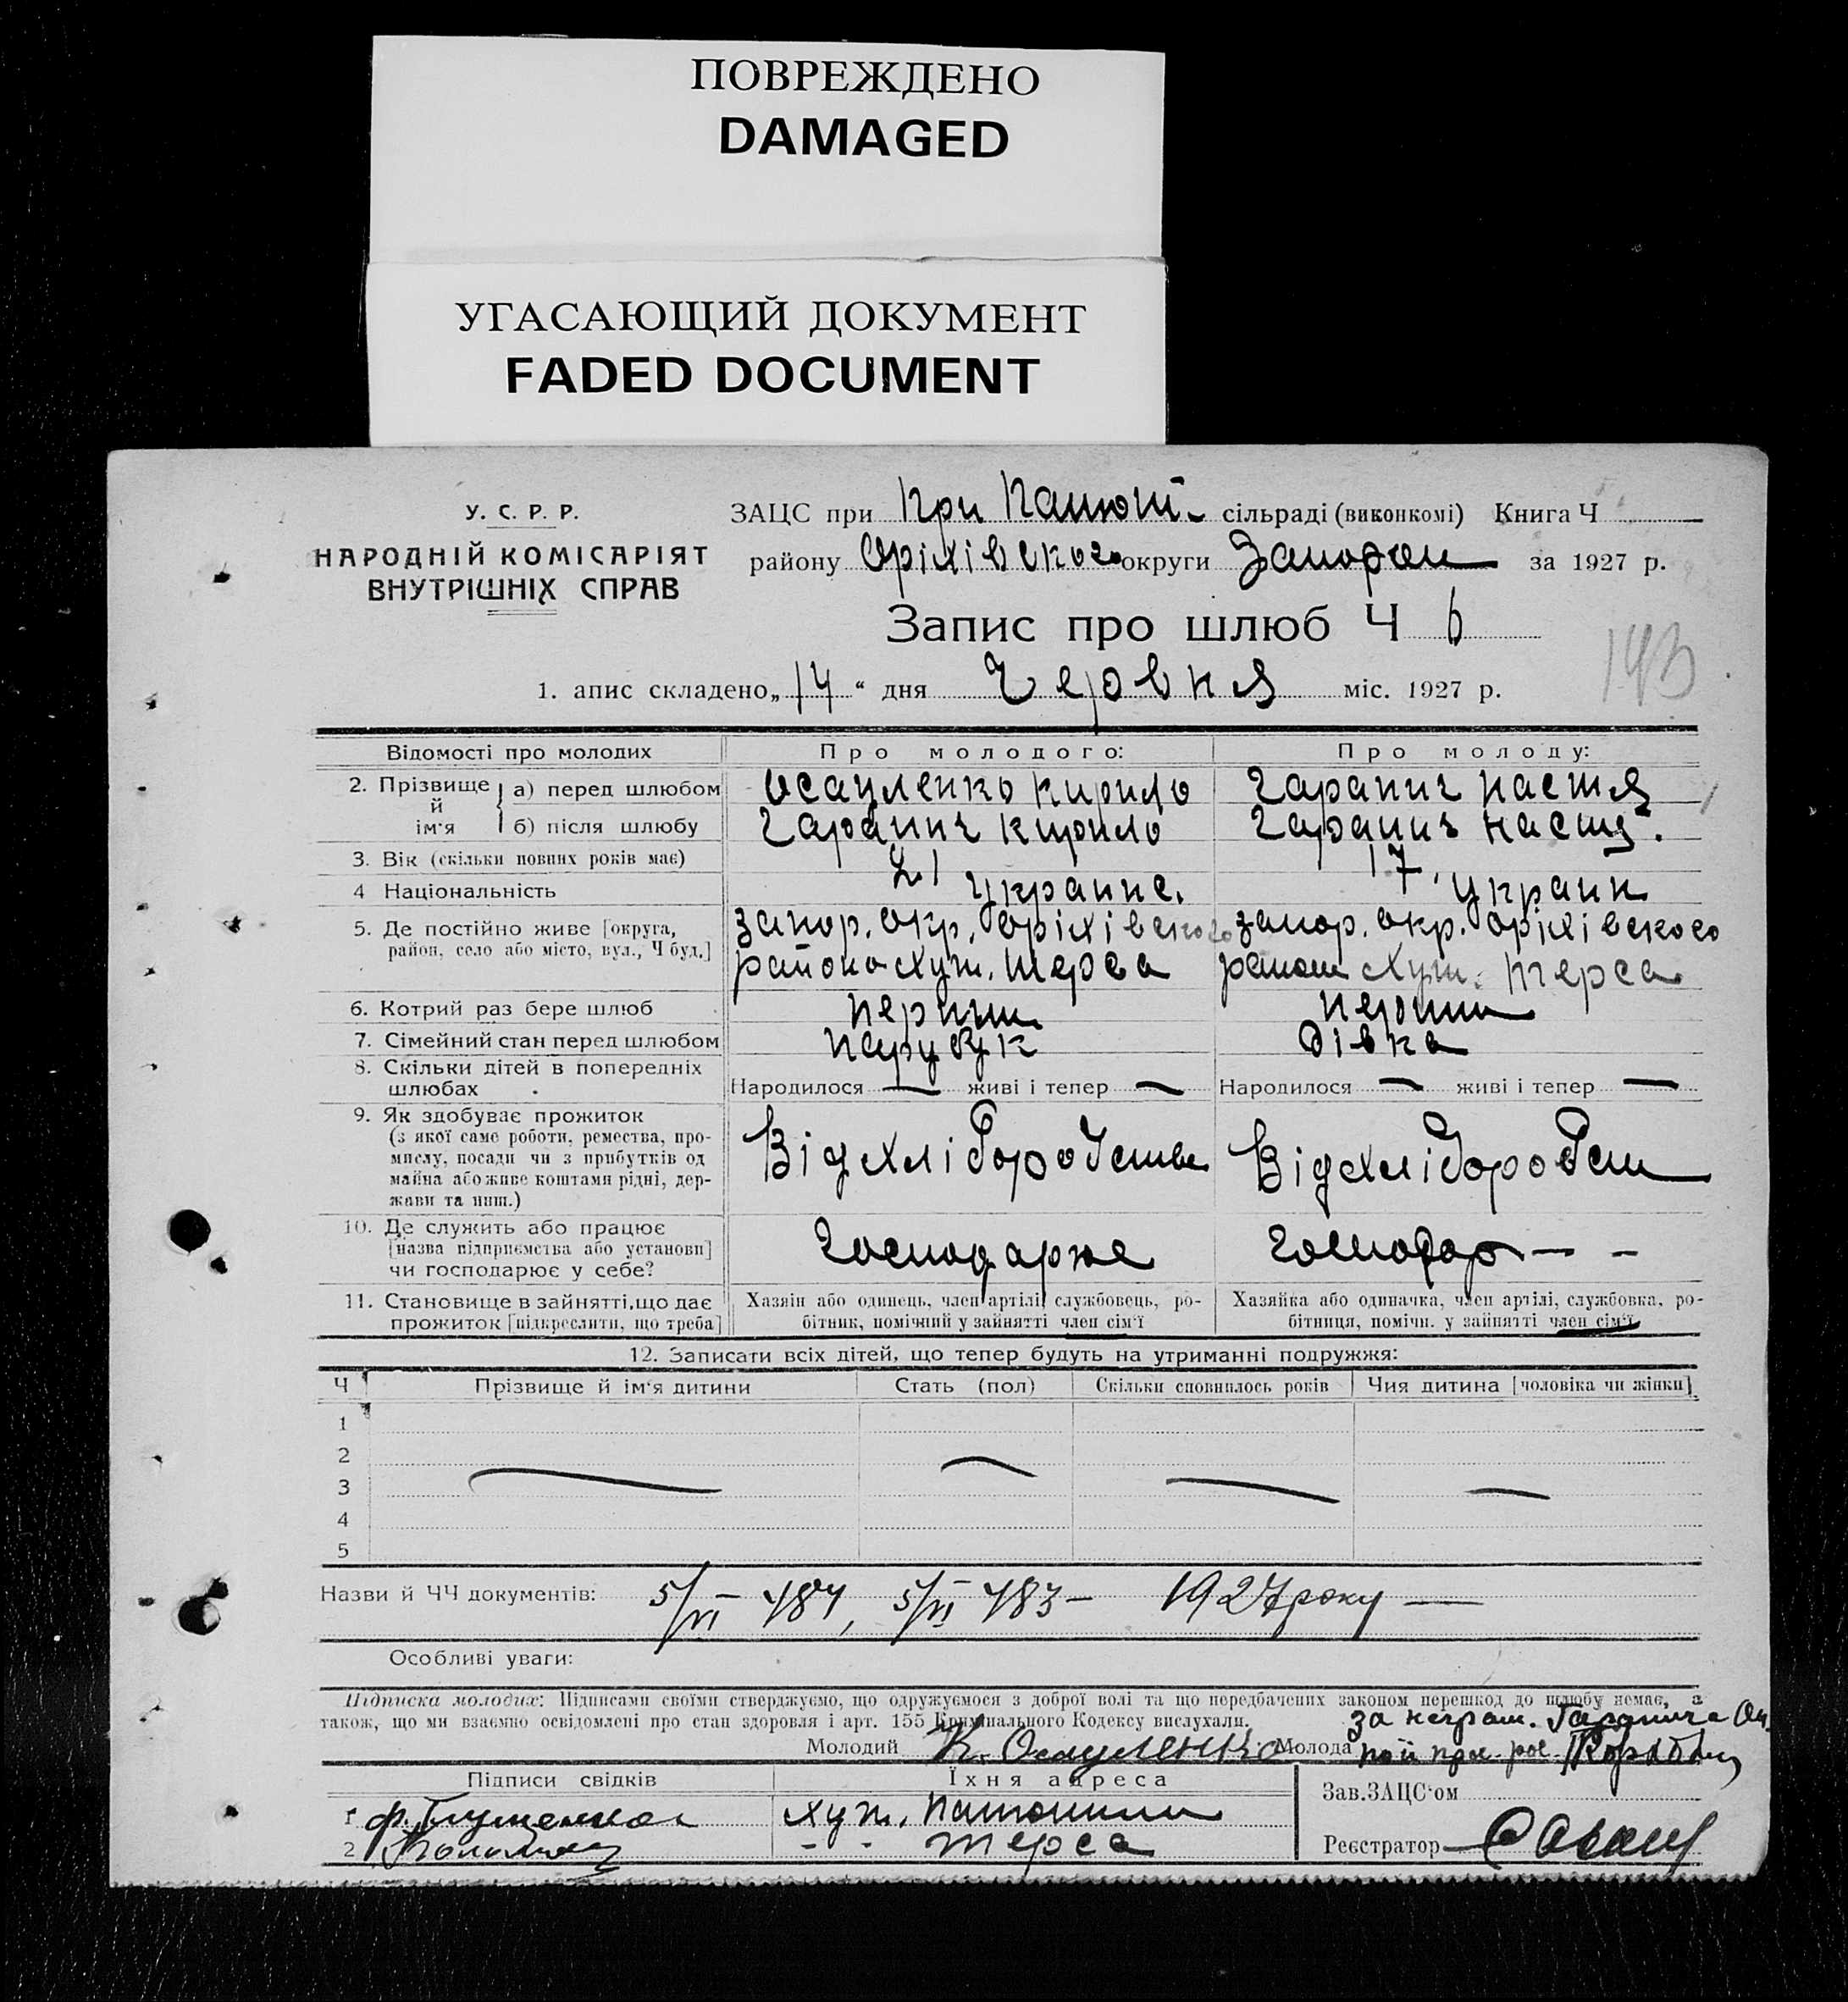 ПОВРЕЖДЕНО
DAMAGED
УГАСАЮЩИЙ ДОКУМЕНТ
FADED DOCUMENT
У. С. Р. Р.
НАРОДНІЙ КОМІСАРІЯТ
ВНУТРІШНІХ СПРАВ
ЗАЦС при При сільраді (виконкомі) Книга Ч
району Оріхівского округи Запорож за 1927 р.
Запис про шлюб Ч 6
143
1. апис складено „14“ дня Червня міс. 1927 р.
Відомості про молодих Про молодого: Про молоду:
2. Прізвище й ім'я а) перед шлюбом Осауленко Кирило Гаранич Настя
б) після шлюбу Гаранич Кирило Гаранич Настя
3. Вік (скільки повних років має) 21 17
4 Національність украине. украин
5. Де постійно живе [округа, запор. окр. Оріхівского запор. окр. Оріхівского
район, село або місто, вул., Ч буд.] району хут. Терса району хут. Терса
6. Котрий раз бере шлюб перший перший
7. Сімейний стан перед шлюбом парубук дівка
8. Скільки дітей в попередніх
шлюбах Народилося — живі і тепер — Народилося — живі і тепер —
9. Як здобуває прожиток
(з якої саме роботи, ремества, про-
мислу, посади чи з прибутків од
майна або живе коштами рідні, дер-
жави та инш.)
Від хліборобства Від хліборобст
10. Де служить або працює
[назва підприємства або установи]
чи господарює у себе?
Господарює Господар — –
11. Становище в зайнятті, що дає Хазяїн або одинець, член артілі, службовець, ро- Хазяйка або одиначка, член артілі, службовка, ро-
прожиток [підкреслити, що треба] бітник, помічний у зайнятті член сім'ї бітниця, помічн. у зайнятті член сім'ї
12. Записати всіх дітей, що тепер будуть на утриманні подружжя:
Ч Прізвище й ім'я дитини Стать (пол) Скільки сповнилось років Чия дитина [чоловіка чи жінки]
1
2
3
4
5
Назви й ЧЧ документів: 5/VI 484, 5/VI 483 – 1927 року —
Особливі уваги:
Підписка молодих: Підписами своїми стверджуємо, що одружуємося з доброї волі та що передбачених законом перешкод до шлюбу немає, а
також, що ми взаємно освідомлені про стан здоровля і арт. 155 Кримінального Кодексу вислухали.
за неграм. Гаранича
Молодий К. Осауленко Молода по її
Підписи свідків Їхня адреса Зав. ЗАЦС'ом
1 хут.
2 - - Терса Реєстратор